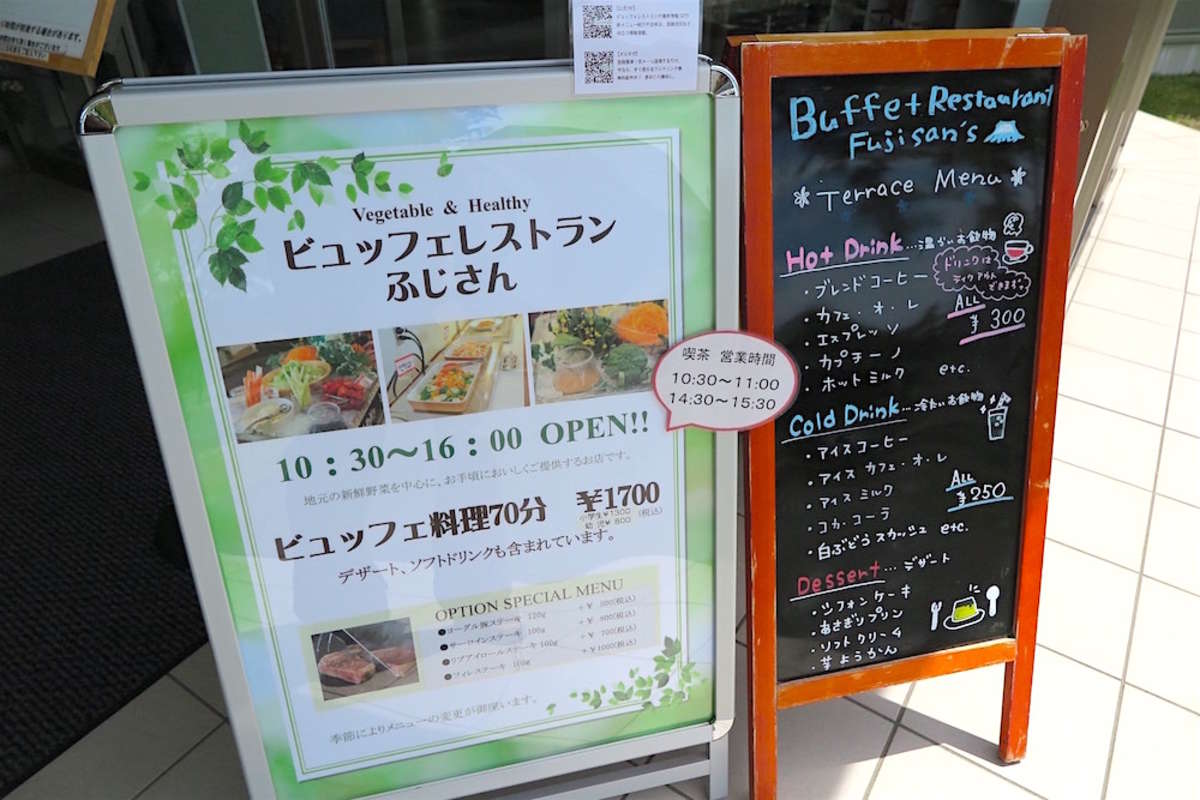 Vegetable & Healthy
ビュッフェレストラン
ふじさん
10：30～16：00 OPEN!!
地元の新鮮野菜を中心に、お手頃においしくご提供するお店です。
ビュッフェ料理70分 ¥1700
小学生¥1300
幼 児¥ 800 (税込)
デザート、ソフトドリンクも含まれています。
OPTION SPECIAL MENU
●ヨーグル豚ステーキ 120g +¥ 300(税込)
●サーロインステーキ 100g +¥ (税込)
●リブアイロールステーキ 100g +¥ 700(税込)
●フィレステーキ 100g +¥1000(税込)
季節によりメニューの変更が御座います。
喫茶 営業時間
10:30～11:00
14:30～15:30
Buffet Restaurant
Fujisan's
Terrace Menu
Hot Drink…温かいお飲物
ドリンクは
テイクアウト
できます。
・ブレンドコーヒー
・カフェ・オ・レ
・エスプレッソ
・カプチーノ
・ホットミルク etc.
ALL
¥300
Cold Drink…冷たいお飲物
・アイスコーヒー
・アイス カフェ・オ・レ
・アイス ミルク
・コカ・コーラ
・白ぶどうスカッシュ etc.
ALL
¥250
Dessert…デザート
・シフォンケーキ
・あさぎりプリン
・ソフトクリーム
・芋ようかん